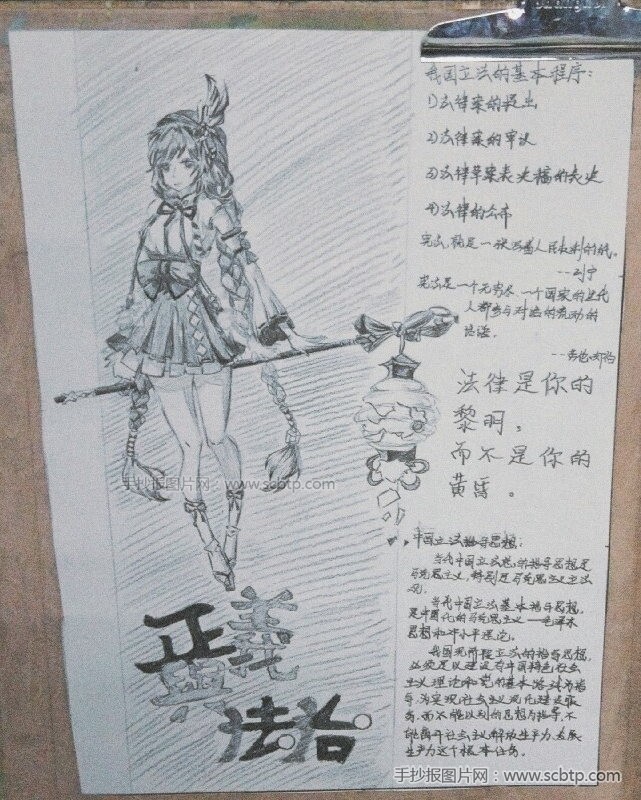 我国立法的基本程序:
1)法律案的提出
2)法律案的审议
3)法律草案表决稿的表决
4)法律的公布
宪法就是一张写着人民权利的纸。
——列宁
宪法是一个无穷尽、一个国家的世代
人都参与对话的流动的
法律是你的
黎明,
而不是你的
黄昏。
手抄报图片网:www.scbtp.com
中国立法指导思想:
当代中国立法总的指导思想是
马克思主义,特别是马克思主义立法
观。
当代中国立法基本指导思想,
是中国化的马克思主义——毛泽东
思想和邓小平理论。
我国现阶段立法的指导思想,
必须是以建设有中国特色社会
主义理论和党的基本路线为指
导,为实现社会主义现代化建设服
务,而不能以别的思想为指导,不
能离开社会主义解放生产力,发展
生产力这个根本任务。
正義
與
法治
手抄报图片网:www.scbtp.com